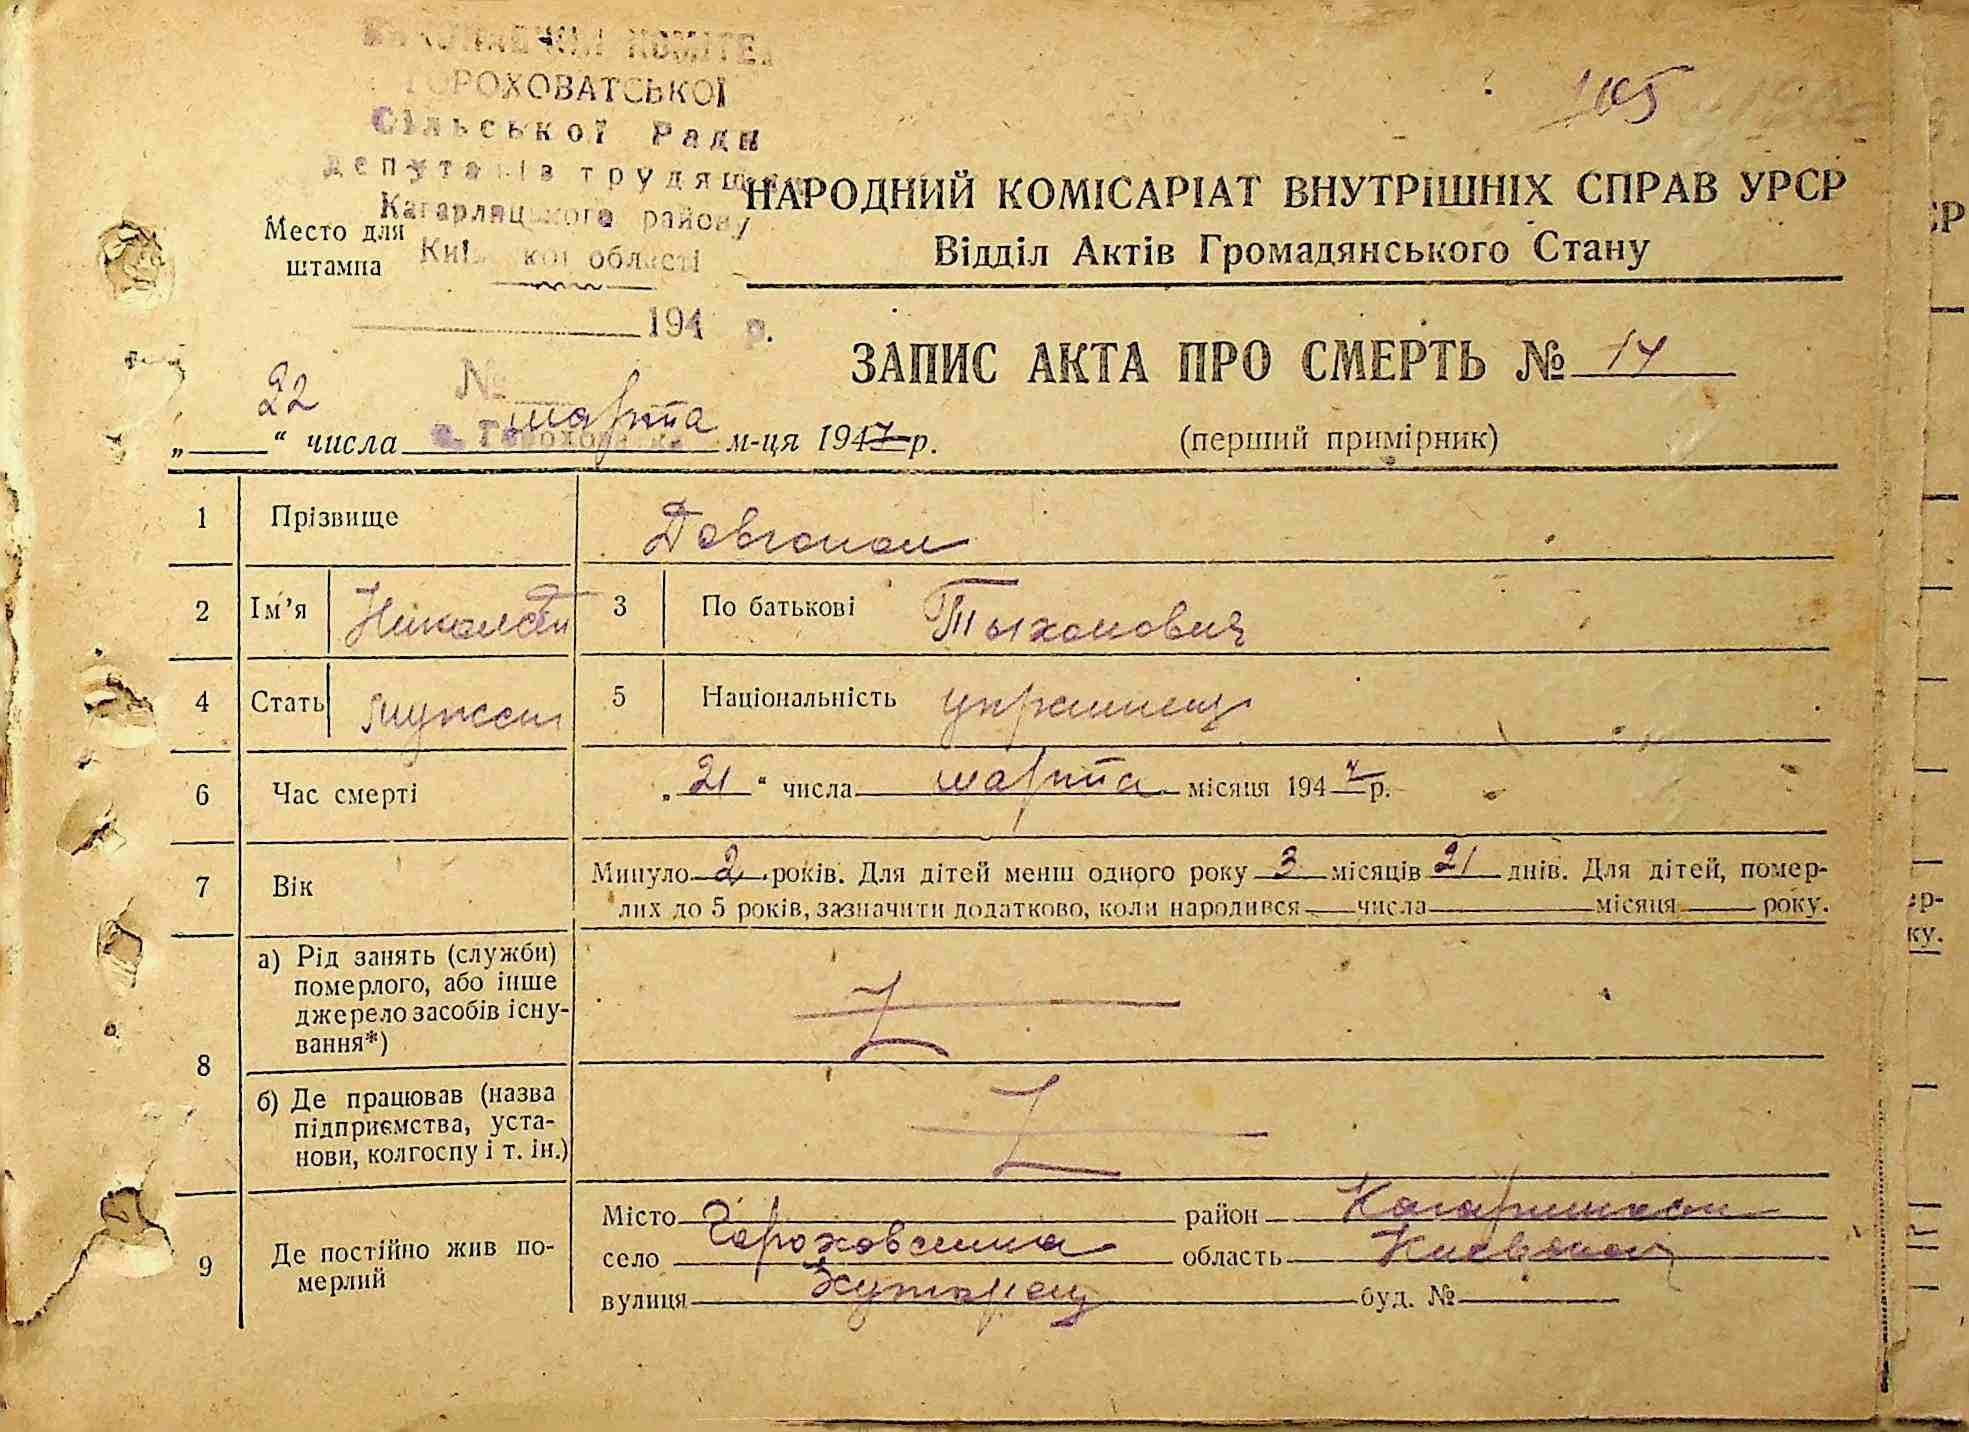 ВИКОНАВЧИЙ КОМІТЕТ
ГОРОХОВАТСЬКОЇ
Сільської Ради
депутатів трудящих
Кагарлицького району
Київської області
Место для штампа
194 р.
№
с. Горохова
105
НАРОДНИЙ КОМІСАРІАТ ВНУТРІШНІХ СПРАВ УРСР
Відділ Актів Громадянського Стану
ЗАПИС АКТА ПРО СМЕРТЬ № 14
„ 22 “ числа марта м-ця 1947 р.
(перший примірник)
1 Прізвище Довгопол
2 Ім'я Николай 3 По батькові Тыхонович
4 Стать мужск 5 Національність украинец
6 Час смерті „ 21 “ числа марта місяця 1947 р.
7 Вік Минуло 2 років. Для дітей менш одного року 3 місяців 21 днів. Для дітей, помер-
лих до 5 років, зазначити додатково, коли народився числа місяця року.
8 а) Рід занять (служби)
померлого, або інше
джерело засобів існу-
вання*)
б) Де працював (назва
підприємства, уста-
нови, колгоспу і т. ін.)
9 Де постійно жив по-
мерлий
Місто район Кагарлицкий
село область Киевской
вулиця Хуторец буд. №